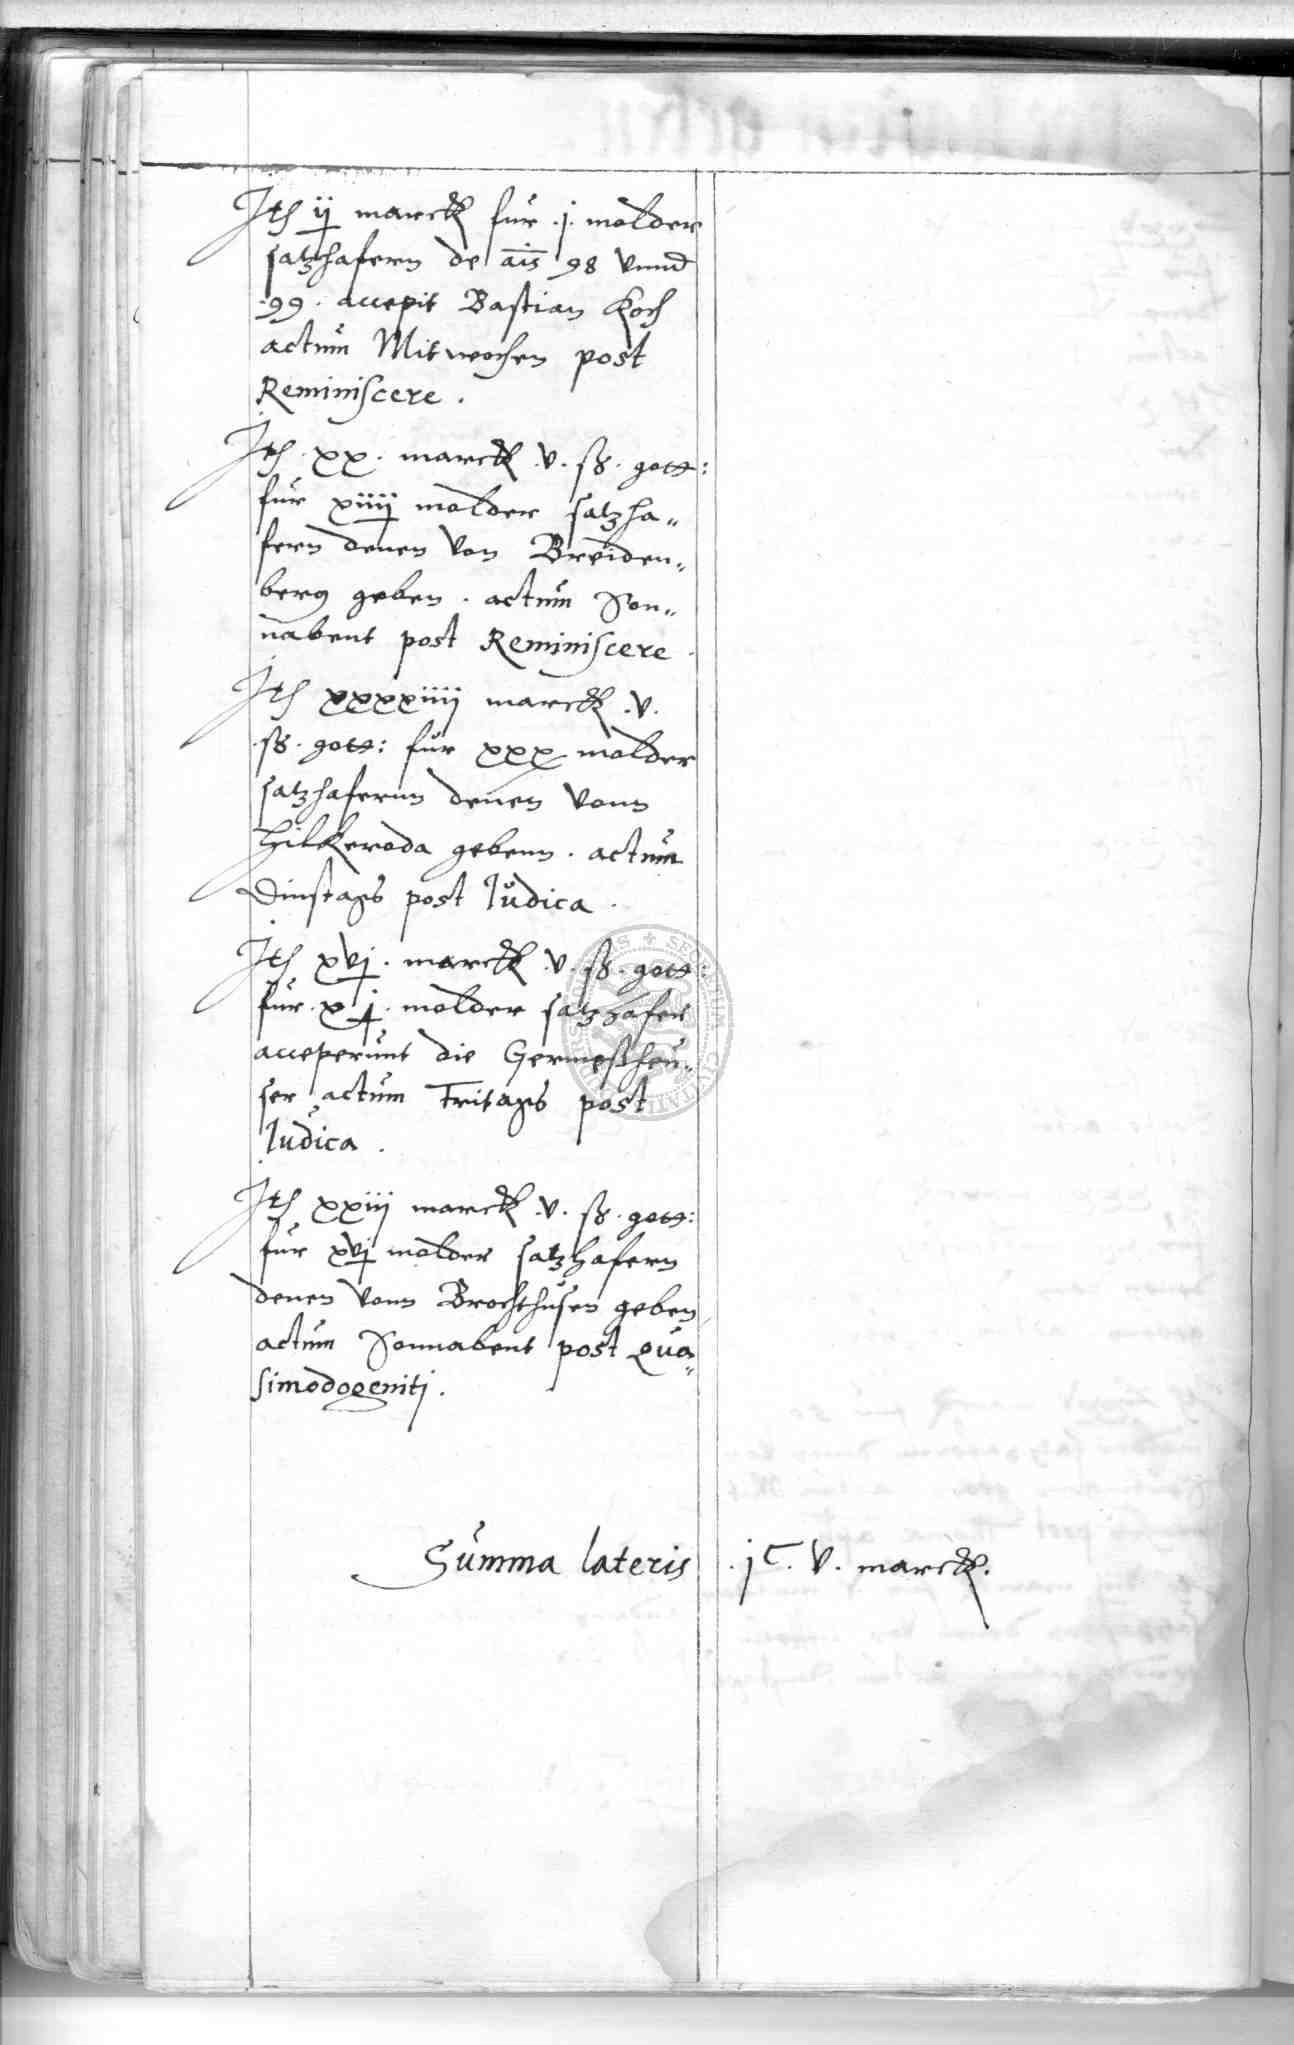 Ite ij marck fur .j. molder
satzhafern de ais 98 vnnd
.99. accepit Bastian Koch
actum Mitwochen post
Reminiscere .
Ite . xx . marck .v. ß . gott:
fur xiiij molder satzha„
fern denen von Breiden„
berg geben . actum Son„
nabent post Reminiscere .
Ite xxxxiiij marck .v.
.ß . gott: fur xxx molder
satzhafernn denen vonn
Hilkeroda gebenn . actum
Dinstags post Iudica .
Ite xvj . marck .v. ß . gott:
fur . x j . molder satzhafer
acceperunt die Germeßheu„
ser actum Fritags post
Iudica .
Ite xxiij marck .v. ß . gott:
fur xvj molder satzhafern
denen vonn Brochthusen geben
actum Sonnabent post Qua„
simodogeniti .
Summa lateris . jC . v . marck .